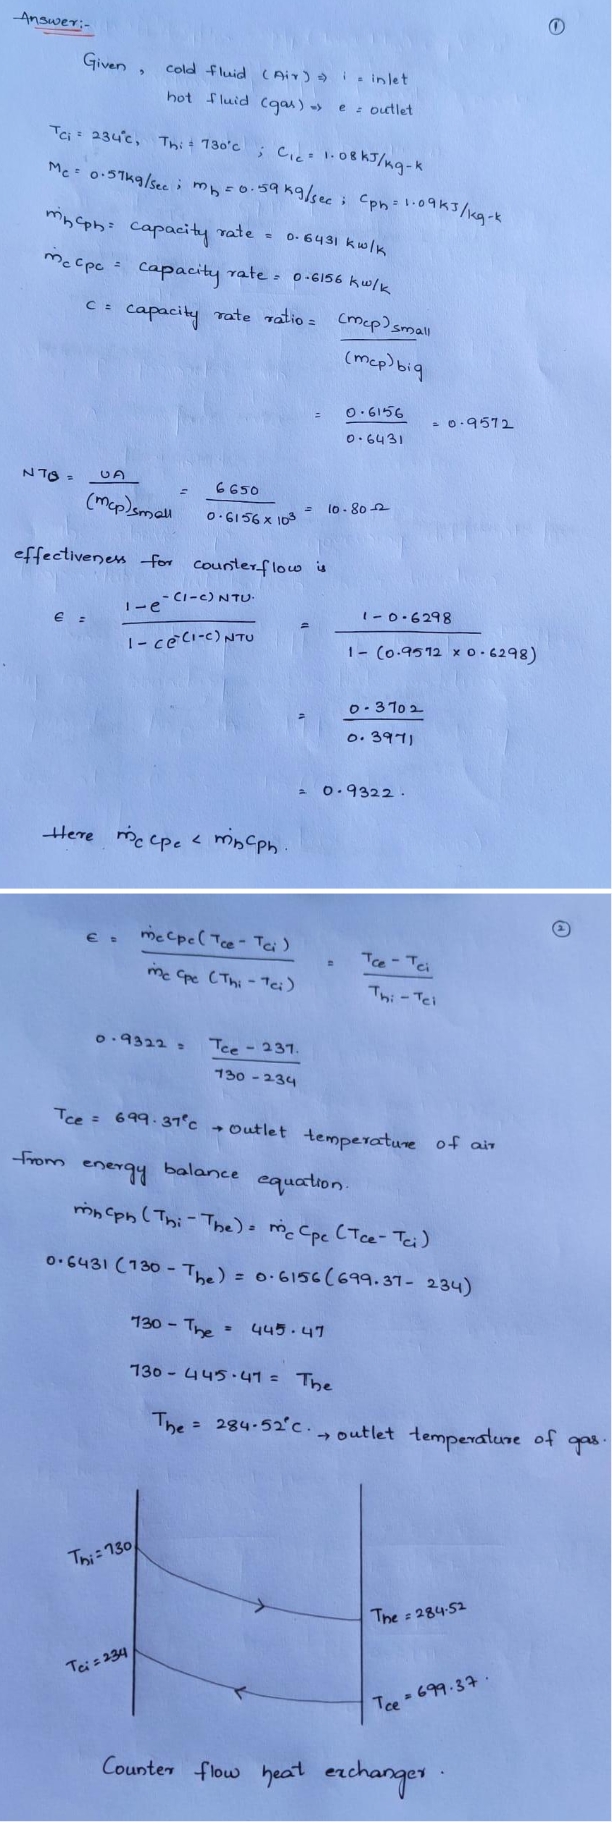 Answer:-
①
Given , cold fluid (Air) ⇒ i = inlet
hot fluid (gas) ⇒ e = outlet
Tci = 234°c, Thi = 730°c ; C1c = 1.08 kJ/kg-k
Mc = 0.57kg/sec ; mh = 0.59 kg/sec ; Cph = 1.09 kJ/kg-k
ṁh cph = capacity rate = 0.6431 kw/k
ṁc cpc = capacity rate = 0.6156 kw/k
C = capacity rate ratio = (mcp)small / (mcp)big
= 0.6156 / 0.6431 = 0.9572
NTU = UA / (mcp)small = 6650 / 0.6156 x 10³ = 10.80 Ω
effectiveness for counterflow is
ϵ = 1-e^-(1-c) NTU. / 1-ce^-(1-c) NTU = 1-0.6298 / 1-(0.9572 x 0.6298)
= 0.3702 / 0.3971
= 0.9322 .
Here ṁc cpc < ṁh cph .
②
ϵ = ṁc cpc (Tce - Tci) / ṁc cpc (Thi - Tci) = Tce - Tci / Thi - Tci
0.9322 = Tce - 237. / 730 - 234
Tce = 699.37°c → outlet temperature of air
from energy balance equation.
ṁh cph (Thi - The) = ṁc cpc (Tce - Tci)
0.6431 (730 - The) = 0.6156 (699.37 - 234)
730 - The = 445.47
730 - 445.47 = The
The = 284.52°c. → outlet temperature of gas.
Thi = 730
The = 284.52
Tci = 234
Tce = 699.37 .
Counter flow heat exchanger .